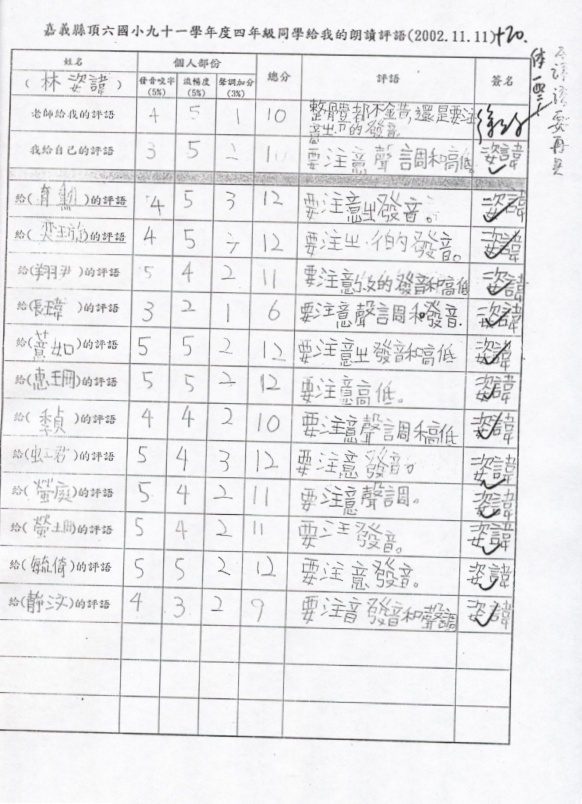 嘉義縣頂六國小九十一學年度四年級同學給我的朗讀評語(2002.11.11)+20.
姓名 個人部份 總分 評語 簽名
(林姿諱) 發音咬字(5%) 流暢度(5%) 聲調加分(3%)
老師給我的評語 4 5 1 10 整體都不錯,還是要注
意出ㄗ的發音
我給自己的評語 3 5 2 10 要注意聲調和高低 姿諱
給( )的評語 4 5 3 12 要注意出發音。 姿諱
給( )的評語 4 5 3 12 要注出 的發音。 姿諱
給(翔尹)的評語 5 4 2 11 要注意 的發音和高低 姿諱
給(長瑋)的評語 3 2 1 6 要注意聲調和發音. 姿諱
給(薏如)的評語 5 5 2 12 要注意出發音和高低 姿諱
給(惠珊)的評語 5 5 2 12 要注意高低。 姿諱
給(季貞)的評語 4 4 2 10 要注意聲調和高低 姿諱
給( )的評語 5 4 3 12 要注意發音。 姿諱
給(螢庭)的評語 5 4 2 11 要注意聲調。 姿諱
給( )的評語 5 4 2 11 要注發音。 姿諱
給(毓倚)的評語 5 5 2 12 要注意發音。 姿諱
給(靜汶)的評語 4 3 2 9 要注音發音和聲調 姿諱